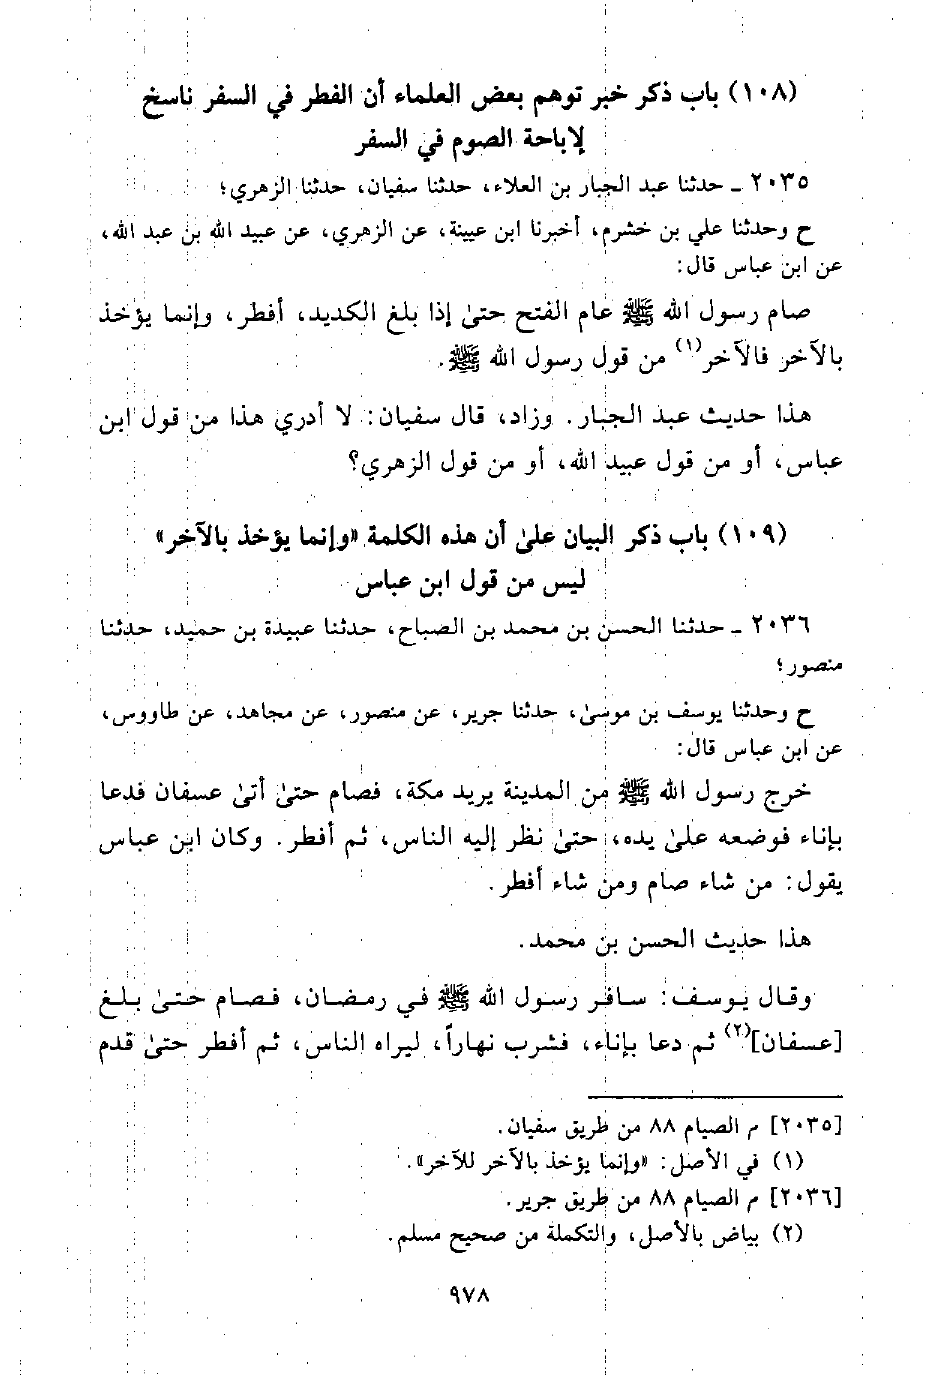 (١٠٨) باب ذكر خبر توهم بعض العلماء أن الفطر في السفر ناسخ
لإباحة الصوم في السفر
٢٠٣٥ ـ حدثنا عبد الجبار بن العلاء، حدثنا سفيان، حدثنا الزهري؛
ح وحدثنا علي بن خشرم، أخبرنا ابن عيينة، عن الزهري، عن عبيد الله بن عبد الله،
عن ابن عباس قال:
صام رسول الله ﷺ عام الفتح حتىٰ إذا بلغ الكديد، أفطر، وإنما يؤخذ
بالآخر فالآخر(١) من قول رسول الله ﷺ.
هذا حديث عبد الجبار. وزاد، قال سفيان: لا أدري هذا من قول ابن
عباس، أو من قول عبيد الله، أو من قول الزهري؟
(١٠٩) باب ذكر البيان علىٰ أن هذه الكلمة «وإنما يؤخذ بالآخر»
ليس من قول ابن عباس
٢٠٣٦ ـ حدثنا الحسن بن محمد بن الصباح، حدثنا عبيدة بن حميد، حدثنا
منصور؛
ح وحدثنا يوسف بن موسىٰ، حدثنا جرير، عن منصور، عن مجاهد، عن طاووس،
عن ابن عباس قال:
خرج رسول الله ﷺ من المدينة يريد مكة، فصام حتىٰ أتىٰ عسفان فدعا
بإناء فوضعه علىٰ يده، حتىٰ نظر إليه الناس، ثم أفطر. وكان ابن عباس
يقول: من شاء صام ومن شاء أفطر.
هذا حديث الحسن بن محمد.
وقال يوسف: سافر رسول الله ﷺ في رمضان، فصام حتىٰ بلغ
[عسفان](٢) ثم دعا بإناء، فشرب نهاراً، ليراه الناس، ثم أفطر حتىٰ قدم
[٢٠٣٥] م الصيام ٨٨ من طريق سفيان.
(١) في الأصل: «وإنما يؤخذ بالآخر للآخر».
[٢٠٣٦] م الصيام ٨٨ من طريق جرير.
(٢) بياض بالأصل، والتكملة من صحيح مسلم.
٩٧٨